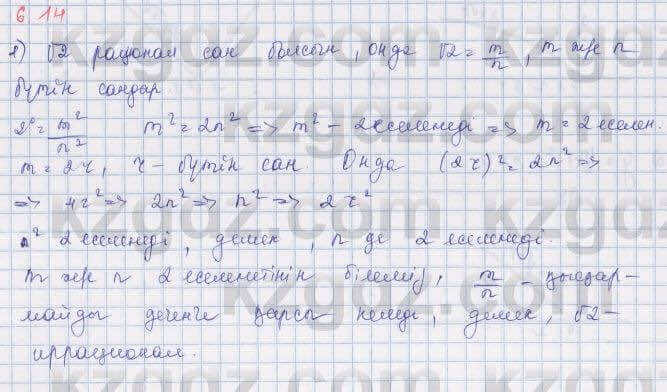 6.14
1) √2 рационал сан болсын, онда √2 = m/n, m және n
бүтін сандар.
2 = m²/n² m² = 2n² => m² - 2 еселенеді => m = 2 еселен.
m = 2r, r - бүтін сан Онда (2r)² = 2n² =>
=> 4r² => 2n² => n² => 2r²
n² 2 еселенеді, демек, n де 2 еселенеді.
m және n 2 еселенетінін білеміз, m/n - қысқар-
майды дегенге қарсы келеді, демек, √2 -
иррационал.
kzgdz.com